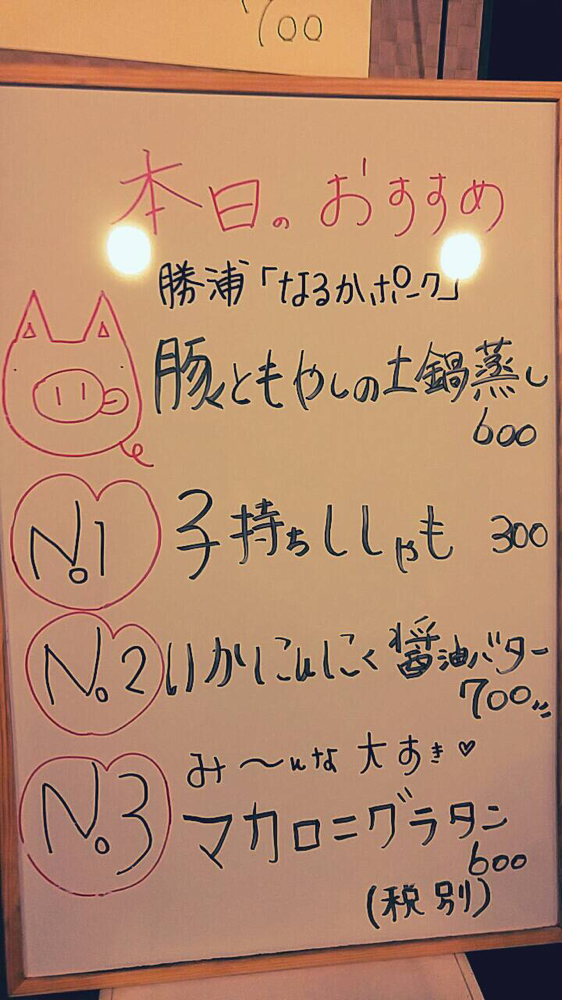 700
本日のおすすめ
勝浦「なるかポーク」
豚ともやしの土鍋蒸し
600
No.1 子持ちししゃも 300
No.2 いかにんにく醤油バター
700
み〜んな大すき♡
No.3 マカロニグラタン
600
(税別)